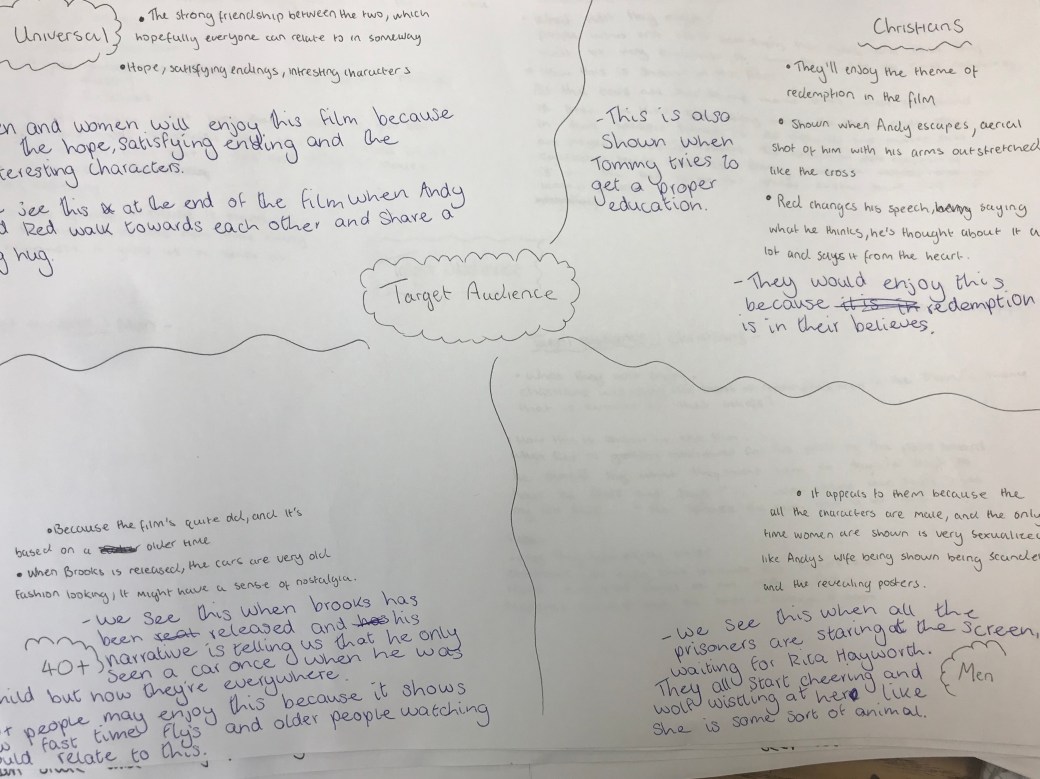 Universal
• The strong friendship between the two, which
hopefully everyone can relate to in someway
• Hope, satisfying endings, intresting characters
en and women will enjoy this film because
the hope, satisfying ending and the
teresting characters.
see this at the end of the film when Andy
d Red walk towards each other and share a
g hug.
Christians
• They'll enjoy the theme of
redemption in the film
• Shown when Andy escapes, aerial
shot of him with his arms outstretched
like the cross
• Red changes his speech, saying
what he thinks, he's thought about it a
lot and says it from the heart.
- They would enjoy this
because it is in redemption
is in their believes.
- This is also
Shown when
Tommy tries to
get a proper
education.
Target Audience
• Because the film's quite old, and it's
based on a older time
• When Brooks is released, the cars are very old
fashion looking, it might have a sense of nostalgia.
- we see this when brooks has
been seat released and has his
narrative is telling us that he only
seen a car once when he was
hild but now they're everywhere.
+ people may enjoy this because it shows
w fast time flys and older people watching
uld relate to this.
40+
• It appeals to them because the
all the characters are male, and the only
time women are shown is very sexualized
like Andys wife being shown being scande
and the revealing posters.
- we see this when all the
prisoners are staring at the screen,
waiting for Rita Hayworth.
They all start cheering and
wolf wistling at her like
she is some sort of animal.
Men